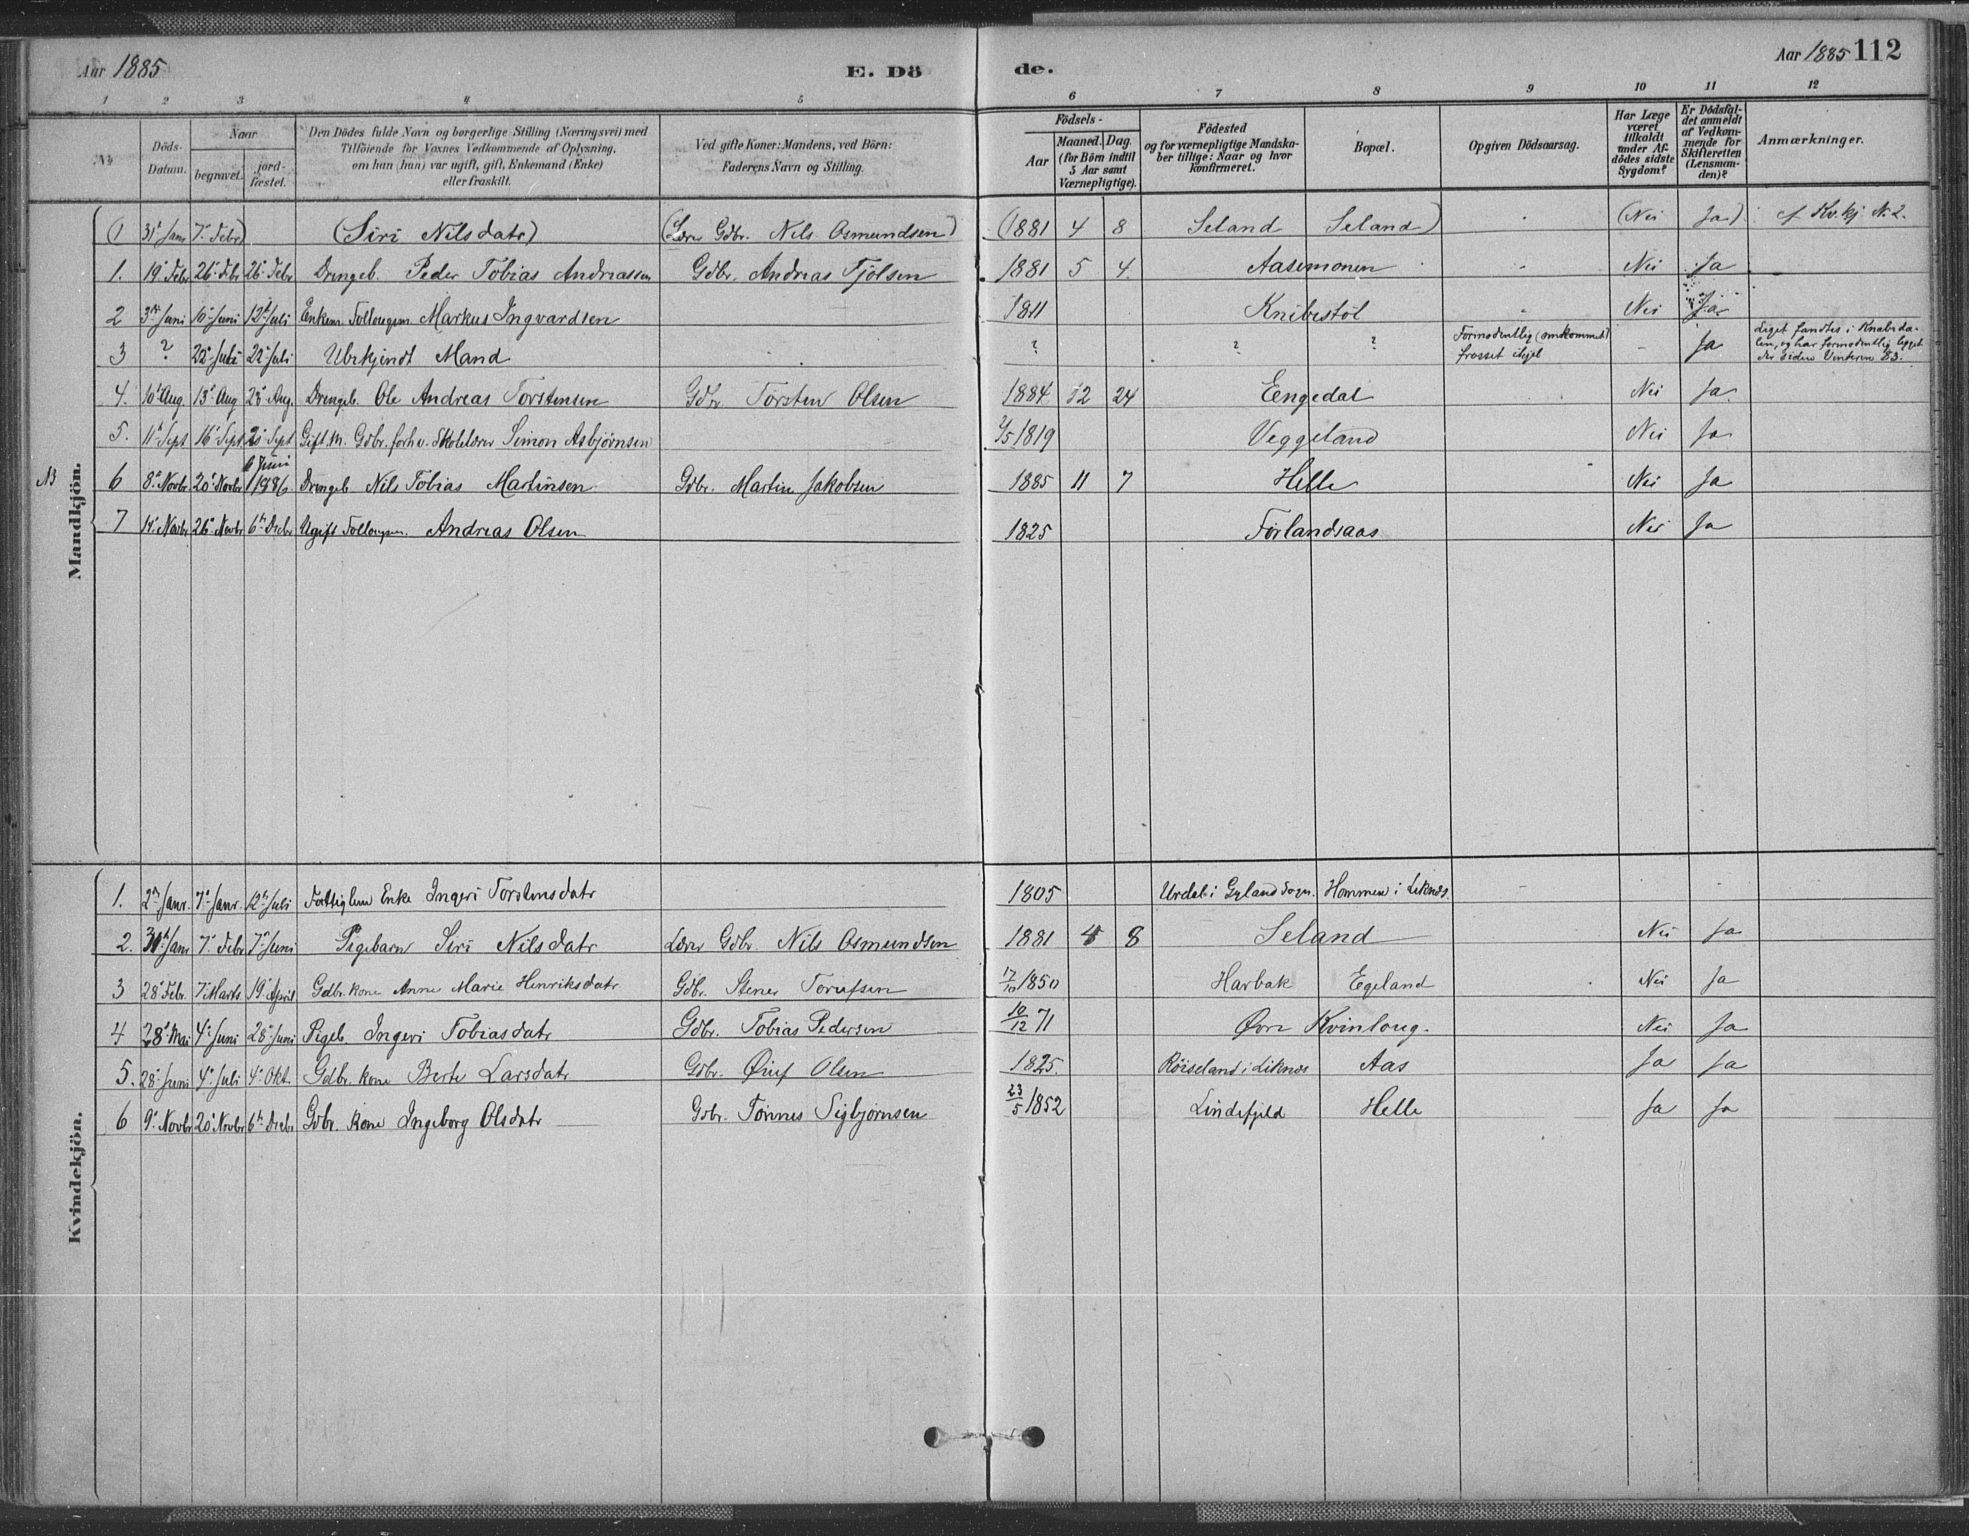 Aar 1885 E. Dö de. Aar 1885 112
1 2 3 4 5 6 7 8 9 10 11 12
No
Döds-Datum.
Naar
begravet.
jord-fæstet.
Den Dödes fulde Navn og borgerlige Stilling (Næringsvei) med
Tilföiende for Voxnes Vedkommende af Oplysning,
om han (hun) var ugift, gift, Enkemand (Enke)
eller fraskilt.
Ved gifte Koner: Mandens, ved Börn:
Faderens Navn og Stilling.
Födsels-
Aar
Maaned. Dag.
(for Börn indtil
5 Aar samt
Værnepligtige).
Födested
og for værnepligtige Mandska-
ber tillige: Naar og hvor
konfirmeret.
Bopæl.
Opgiven Dödsaarsag.
Har Læge
været
tilkaldt
under Af-
dödes sidste
Sygdom?
Er Dödsfal-
det anmeldt
af Vedkom-
mende for
Skifteretten
(Lensman-
den)?
Anmærkninger.
Mandkjön.
(1 31 Janr 7 Febr) (Siri Nilsdatr) (Lærer Gdbr. Nils Osmundsen) (1881 4 8 Seland Seland) (Nei Ja) cf Kv.kj N. 2.
1. 19 Febr 26 Febr 26 Febr Drengeb. Peder Tobias Andreassen Gdbr. Andreas Tjölsen 1881 5 4. Aasemonen Nei Ja
2 3 Juni 10 Juni 12 Juli Enkem. Follougsm. Markus Ingvardsen 1811 Knibestöl Nei Ja
3 ? 22 Juli 22 Juli Ubekjendt Mand ? ? ? Formodentlig (omkommet) frosset ihjel - Ja Liget fandtes i Knabeda-
len, og har formodentlig ligget
der siden Vinteren 83.
4. 10 Aug. 13 Aug 23 Aug. Drengeb. Ole Andreas Torstensen Gdbr Torsten Olsen 1884 12 24 Eengedal Nei Ja
5. 11 Sept 16 Sept 20 Sept Gift M. Gdbr. forhv. Skolelærer Simon Asbjörnsen 2/5 1819 Veggeland Nei Ja
NB 6 8 Novbr 20 Novbr 6 Juni 1886 Drengeb. Nils Tobias Martinsen Gdbr. Martin Jakobsen 1885 11 7 Helle Nei Ja
7 14 Novbr 26 Novbr 6 Decbr Ugift Follougsm. Andreas Olsen 1825 Förlandsaas Nei Ja
Kvindekjön.
1. 2 Janr. 7 Janr. 12 Juli Fattiglem Enke Ingeri Torstensdatr 1805 Urdal i Gyland Sogn. Hommen i Liknes.
2. 31 Janr 7 Febr 7 Juni Pigebarn Siri Nilsdatr Lærer Gdbr. Nils Osmundsen 1881 4 8 Seland Nei Ja
3 28 Febr. 7 Marts 19 April Gdbr. kone Anne Marie Henriksdatr Gdbr. Stener Torufsen 17/10 1850 Harbak Egeland Nei Ja
4 28 Mai 4 Juni 28 Juni Pigeb. Ingeri Tobiasdatr Gdbr. Tobias Pedersen 10/12 71 Övre Kvinloug. Nei Ja
5. 28 Juni 4 Juli 4 Okt. Gdbr. kone Berte Larsdatr Gdbr. Öiuf Olsen 1825. Röiseland i Liknes Aas Ja Ja
6 9 Novbr 20 Novbr 6 Decbr Gdbr. kone Ingeborg Olsdatr Gdbr. Tönnes Sigbjörnsen 23/5 1852 Lindefjeld Helle Ja Ja